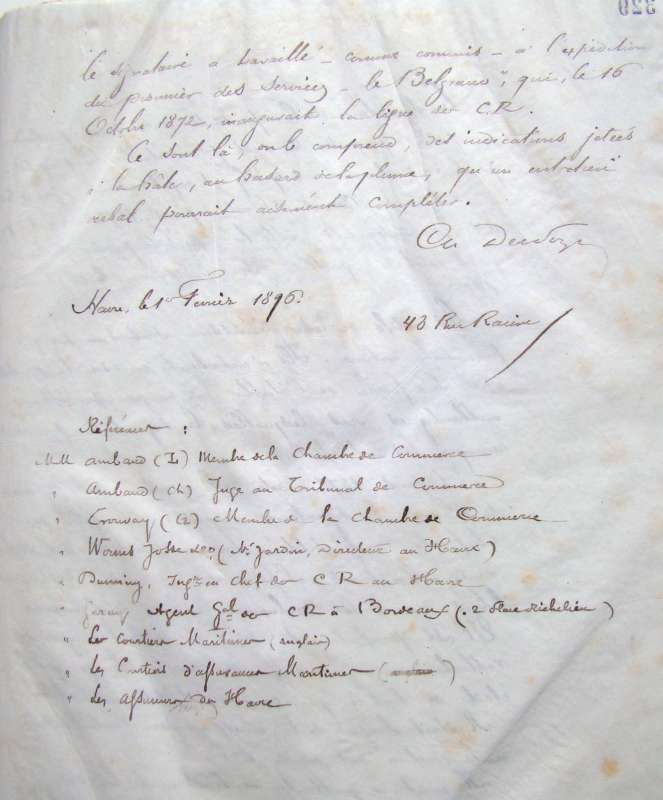 320
le signataire a travaillé – comme commis – à l'expédition
du premier des services – le Belgrano", qui, le 16
Octobre 1872, inaugurait la ligne des C.R.
Ce sont là, on le comprend, des indications jetées
à la hâte, au hasard de la plume, qu'un entretien
verbal pourrait aisément compléter.
Ch
Havre, le 1er Février 1896.
43 Rue Racine
Références :
MM Ambaud (L) Membre de la Chambre de Commerce
" Ambaud (Ch) Juge au Tribunal de Commerce
" (G) Membre de la Chambre de Commerce
" Worms Josse &co (Mr Jardin, Directeur au Havre)
" Ingr en chef des C R au Havre
" Agent Gal des C R à Bordeaux (2 Place Richelieu)
" Les Courtiers Maritimes (anglais)
" Les Courtiers d'assurances Maritimes ( )
" Les Assureurs du Havre